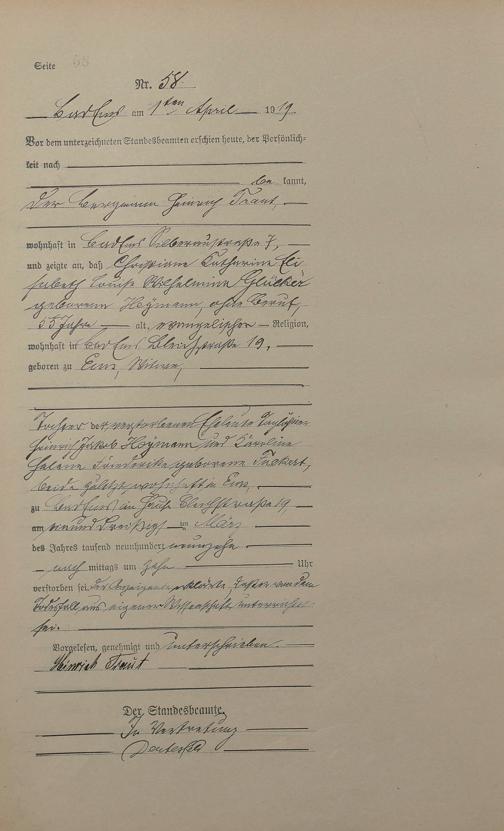 Seite 58
Nr. 58
Bad Ems am 1ten April 1919
Vor dem unterzeichneten Standesbeamten erschien heute, der Persönlich-
keit nach
be kannt,
der Bergmann Heinrich Traut,
wohnhaft in Bad Ems Silberaustraße 7,
und zeigte an, daß Christiane Katharine Eli
sabeth Louise Wilhelmine Glücker
geborene Heymann, ohne Beruf,
55 Jahre alt, evangelischer Religion,
wohnhaft in Bad Ems Bleichstraße 19,
geboren zu Ems, Witwe,
Tochter der verstorbenen Eheleute Taglöhner
Heinrich Jakob Heymann und Karoline
Helene Friederike geborene
beide zuletzt wohnhaft in Ems,
zu Bad Ems im Hause Bleichstraße 19
am einunddreißigsten März
des Jahres tausend neunhundert neunzehn
nach mittags um zehn Uhr
verstorben sei. Der Anzeigende erklärte, daß er von dem
Todesfall aus eigener Wissenschaft unterrichtet
sei.
Vorgelesen, genehmigt und unterschrieben.
Heinrich Traut
Der Standesbeamte.
In Vertretung